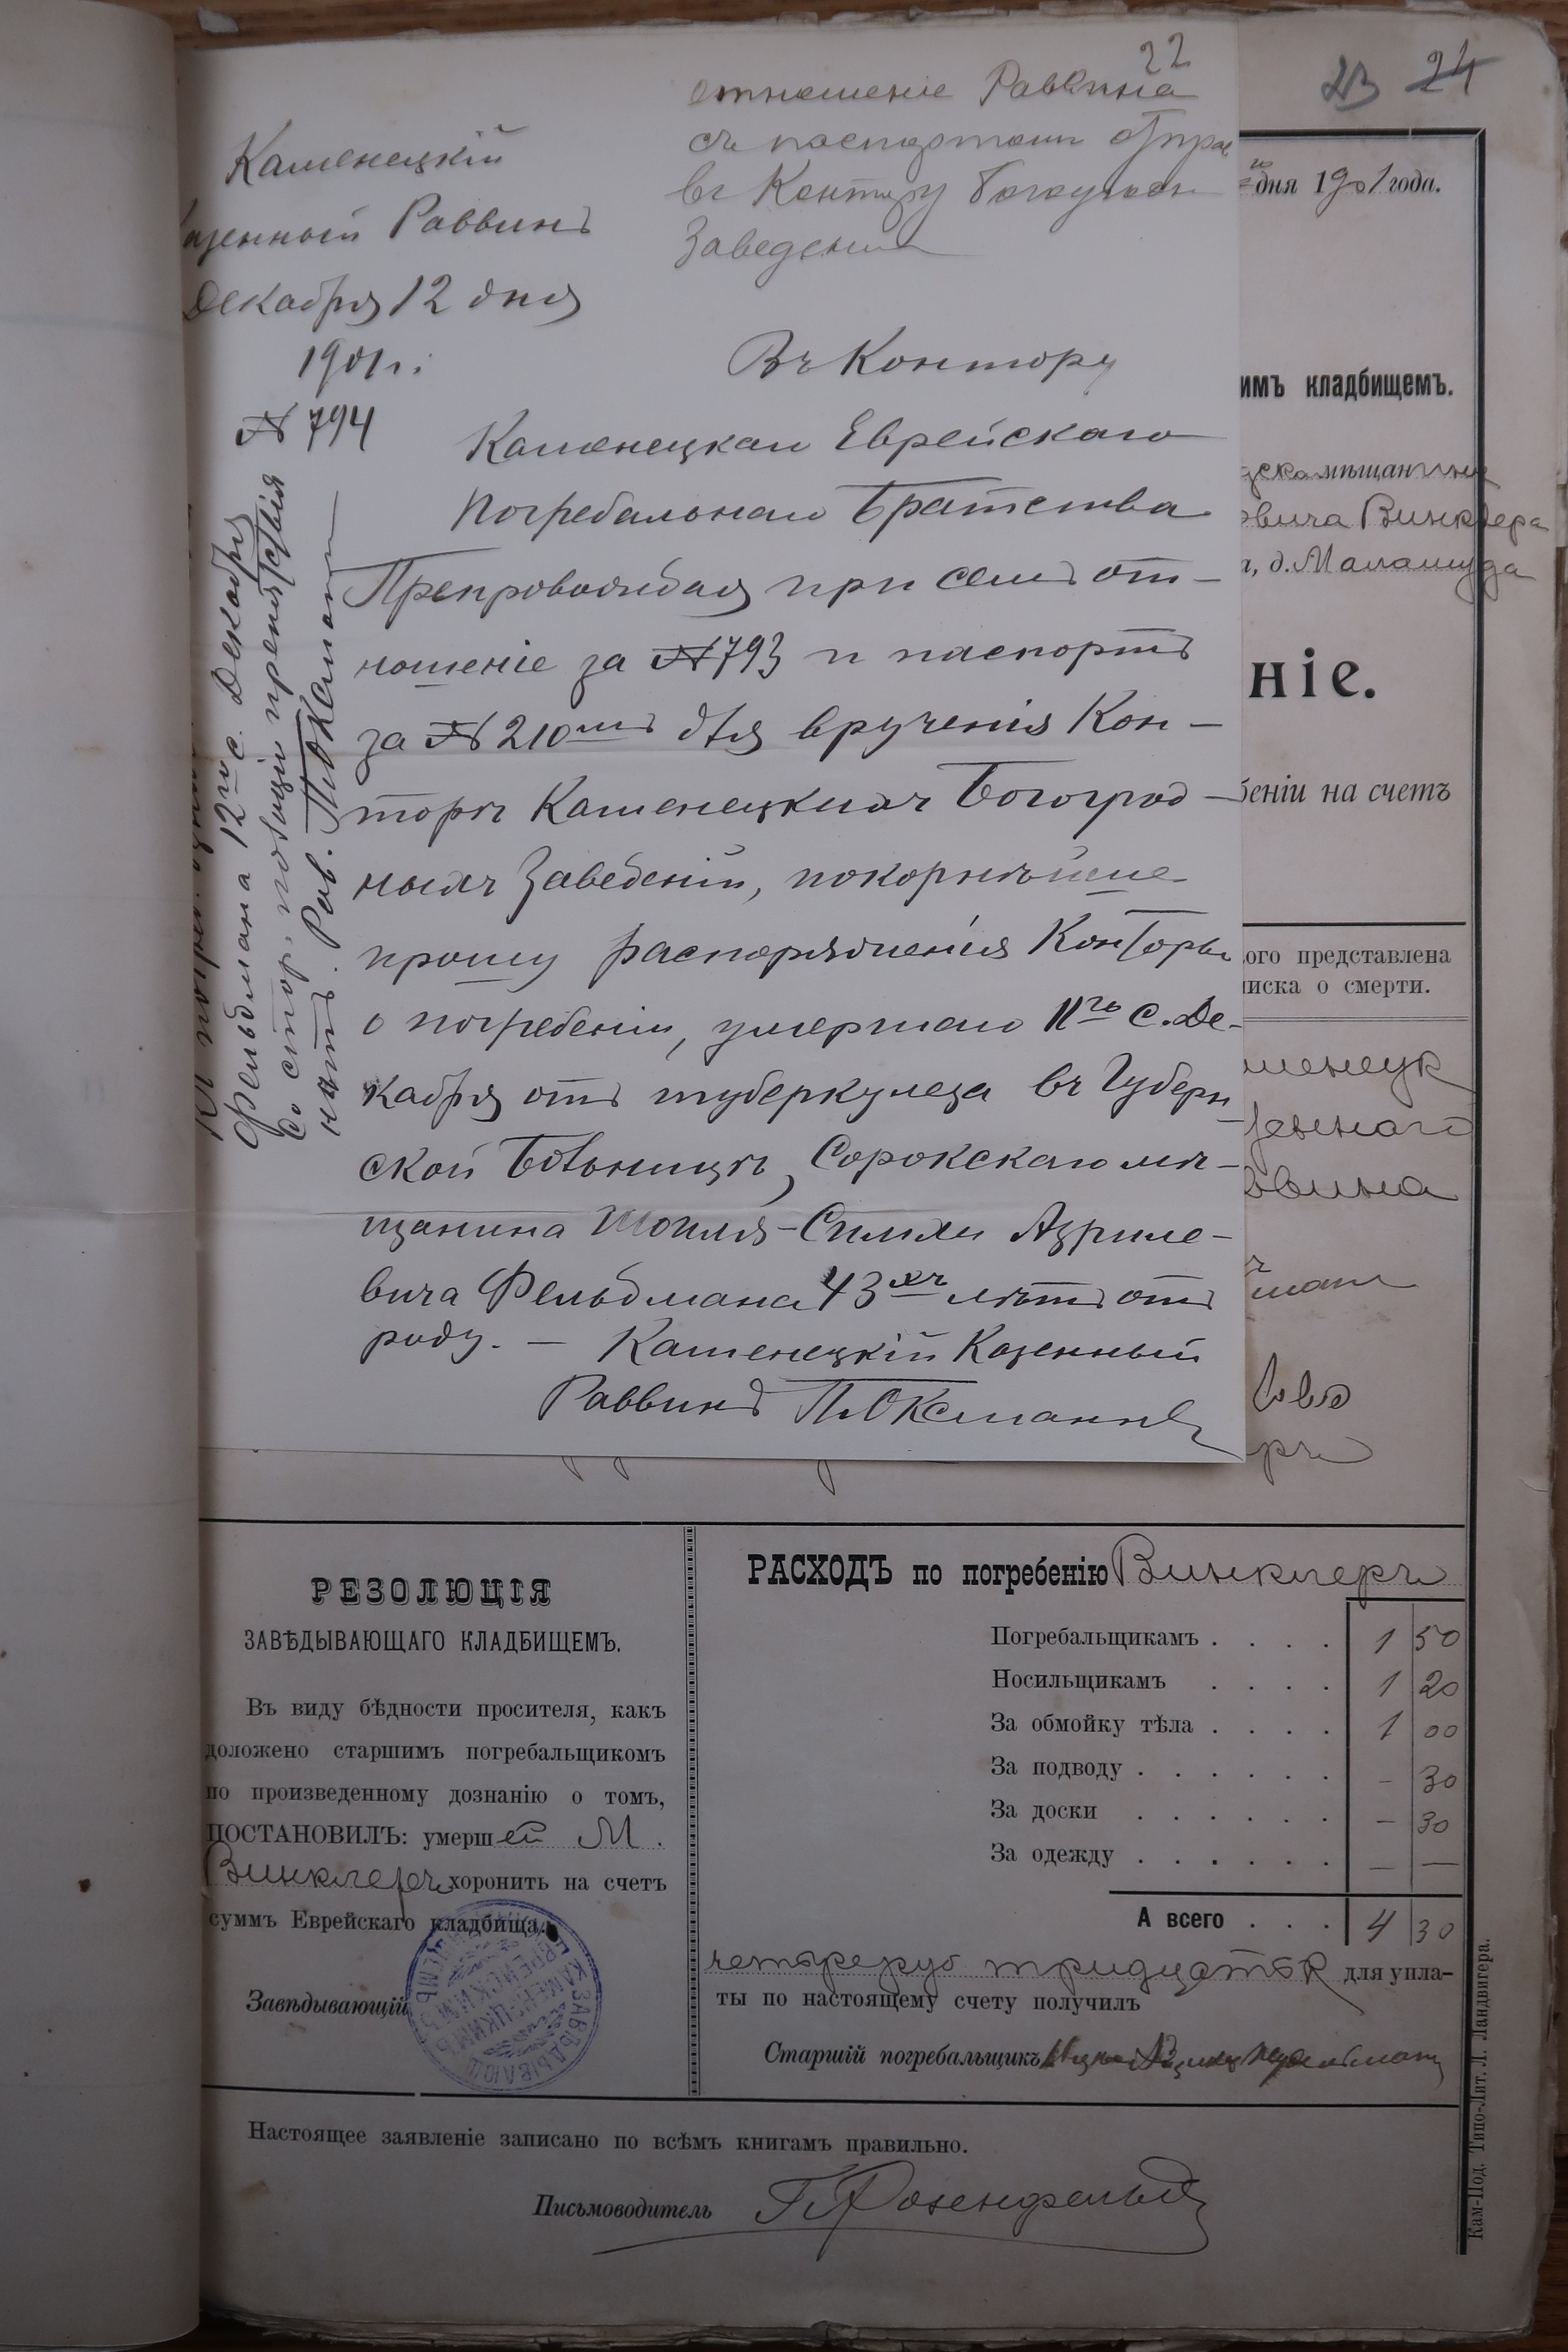 22
23 24
отношеніе Раввина
съ паспортомъ
въ Контору
Заведеній
Каменецкій
Раввинъ
Декабря 12 дня
1901 г.
№ 794
Въ Контору
Каменецкаго Еврейскаго
Погребальнаго Братства
Препровождая при семъ от-
ношеніе за № 793 и паспортъ
за № 210 для врученія Кон-
торѣ Каменецкихъ Богоугод-
ныхъ Заведеній, покорнѣйше
прошу распоряженія Конторы
о погребеніи, умершаго 11го с. Де-
кабря отъ туберкулеза въ Губерн
ской Больницѣ, Сорокскаго мѣ-
щанина Шоиля-Симхи Азриле-
вича Фельдмана 43хъ лѣтъ отъ
роду. — Каменецкій Казенный
Раввинъ
Фельдмана 12го с. Декабря
со стор. полиціи препятствія
нѣтъ. Рав.
дня 1901 года.
имъ кладбищемъ.
мѣщан
вича Винклера
, д.
ніе.
беніи на счетъ
ого представлена
иска о смерти.
РЕЗОЛЮЦІЯ
ЗАВѢДЫВАЮЩАГО КЛАДБИЩЕМЪ.
Въ виду бѣдности просителя, какъ
доложено старшимъ погребальщикомъ
по произведенному дознанію о томъ,
ПОСТАНОВИЛЪ: умершей М.
Винклеръ хоронить на счетъ
суммъ Еврейскаго кладбища.
Завѣдывающій
РАСХОДЪ по погребенію Винклеръ
Погребальщикамъ . . . . 1 50
Носильщикамъ . . . . 1 20
За обмойку тѣла . . . . 1 00
За подводу . . . . . . – 30
За доски . . . . . . – 30
За одежду . . . . . . – —
А всего . . . 4 30
четыре руб тридцать к для упла-
ты по настоящему счету получилъ
Старшій погребальщикъ
Настоящее заявленіе записано по всѣмъ книгамъ правильно.
Письмоводитель Г. Розенфельдъ
Кам-Под. Типо-Лит. Л. Ландвигера.